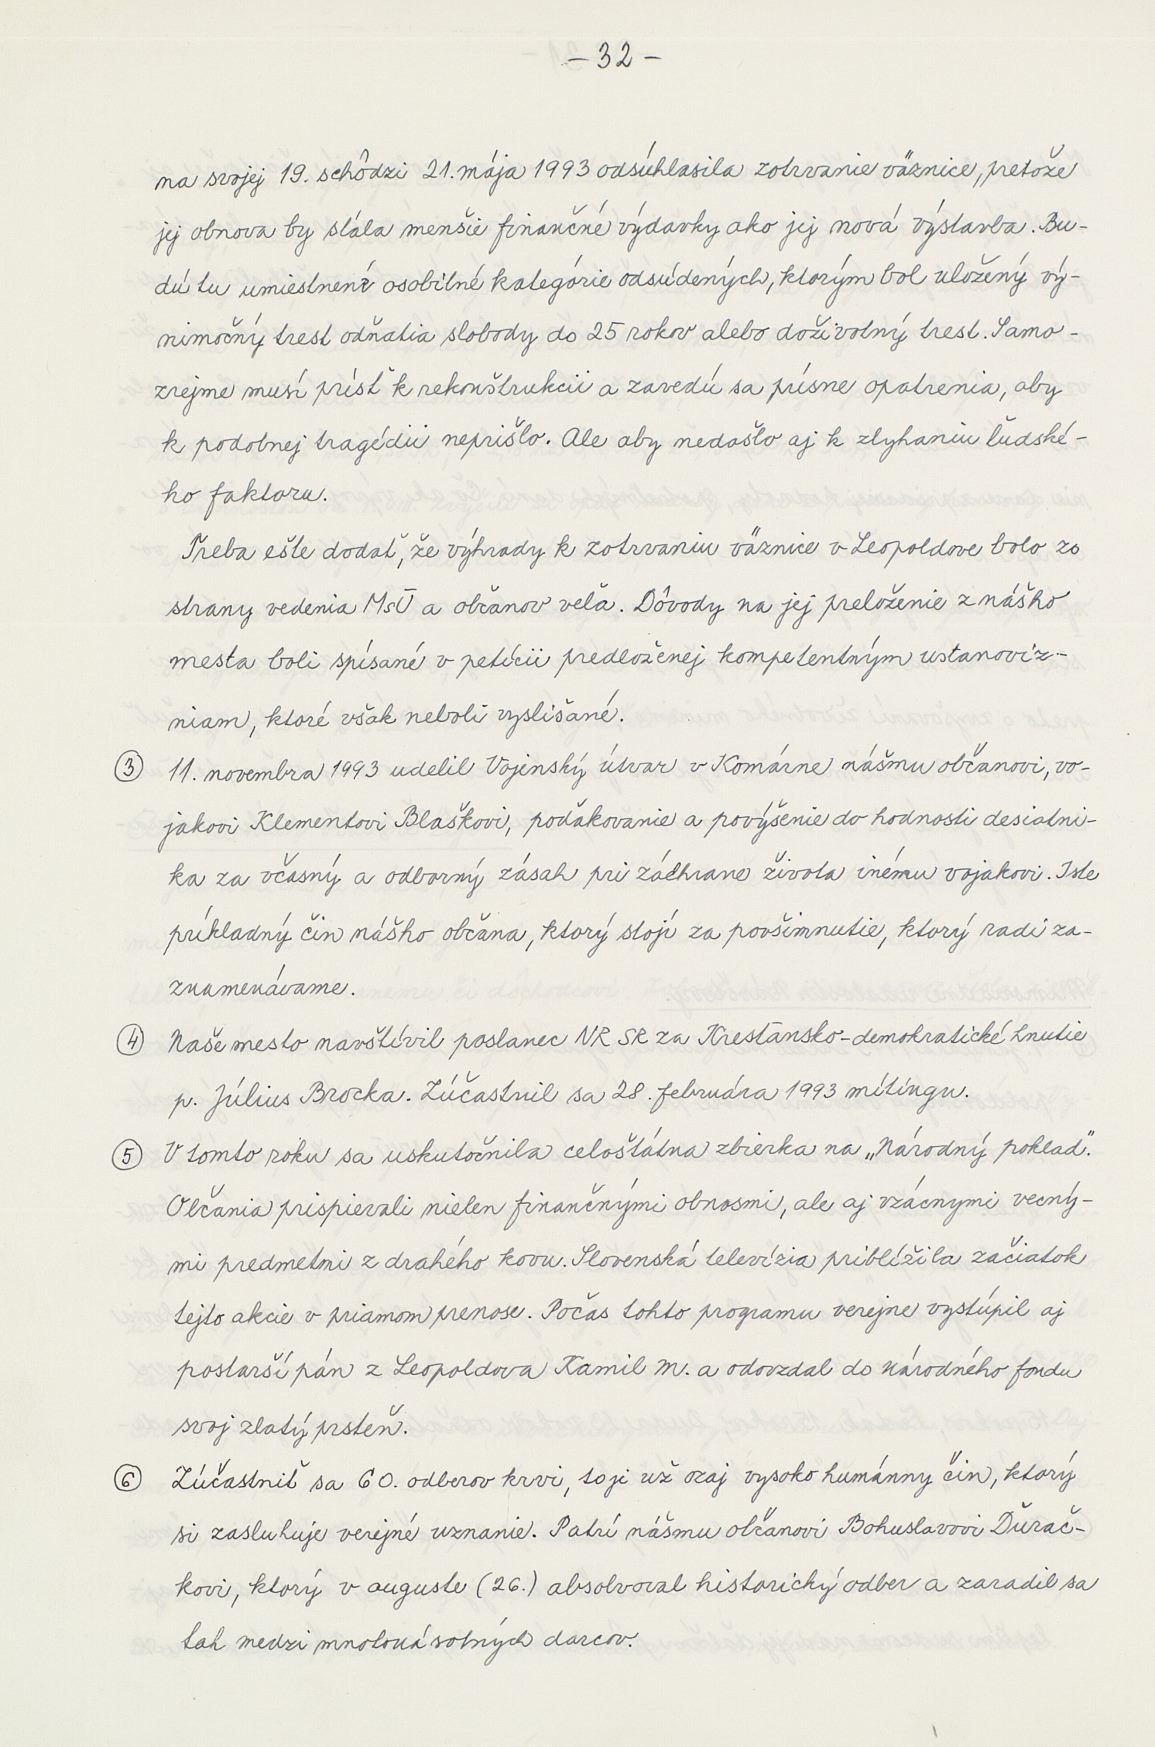 - 32 -
na svojej 19. schôdzi 21. mája 1993 odsúhlasila zotrvanie väznice, pretože
jej obnova by stála menšie finančné výdavky ako jej nová výstavba. Bu-
dú tu umiestnené osobitné kategórie odsúdených, ktorým bol uložený vý-
nimočný trest odňatia slobody do 25 rokov alebo doživotný trest. Samo-
zrejme musí prísť k rekonštrukcii a zavedú sa prísne opatrenia, aby
k podobnej tragédii neprišlo. Ale aby nedašlo aj k zlyhaniu ľudské-
ho faktoru.
Treba ešte dodať, že výhrady k zotrvaniu väznice v Leopoldove bolo zo
strany vedenia MsÚ a občanov veľa. Dôvody na jej preloženie z nášho
mesta boli spísané v petícii predloženej kompetentným ustanoviz-
niam, ktoré však neboli vyslišané.
③ 11. novembra 1993 udelil Vojinský útvar v Komárne nášmu občanovi, vo-
jakovi Klementovi Blaškovi, poďakovanie a povýšenie do hodnosti desiatni-
ka za včasný a odborný zásah pri záchrane života inému vojakovi. Iste
príkladný čin nášho občana, ktorý stojí za povšimnutie, ktorý radi za-
znamenávame.
④ Naše mesto navštívil poslanec NR SR za Kresťansko-demokratické hnutie
p. Július Brocka. Zúčastnil sa 28. februára 1993 mítingu.
⑤ V tomto roku sa uskutočnila celoštátna zbierka na „Národný poklad".
Občania prispievali nielen finančnými obnosmi, ale aj vzácnymi vecný-
mi predmetmi z drahého kovu. Slovenská televízia priblížila začiatok
tejto akcie v priamom prenose. Počas tohto programu verejne vystúpil aj
postarší pán z Leopoldova Kamil M. a odovzdal do Národného fondu
svoj zlatý prsteň.
⑥ Zúčastniť sa 60. odberov krvi, to je už ozaj vysoko humánny čin, ktorý
si zasluhuje verejné uznanie. Patrí nášmu občanovi Bohuslavovi Ďurač-
kovi, ktorý v auguste (26.) absolvoval historický odber a zaradil sa
tak medzi mnohonásobných darcov.